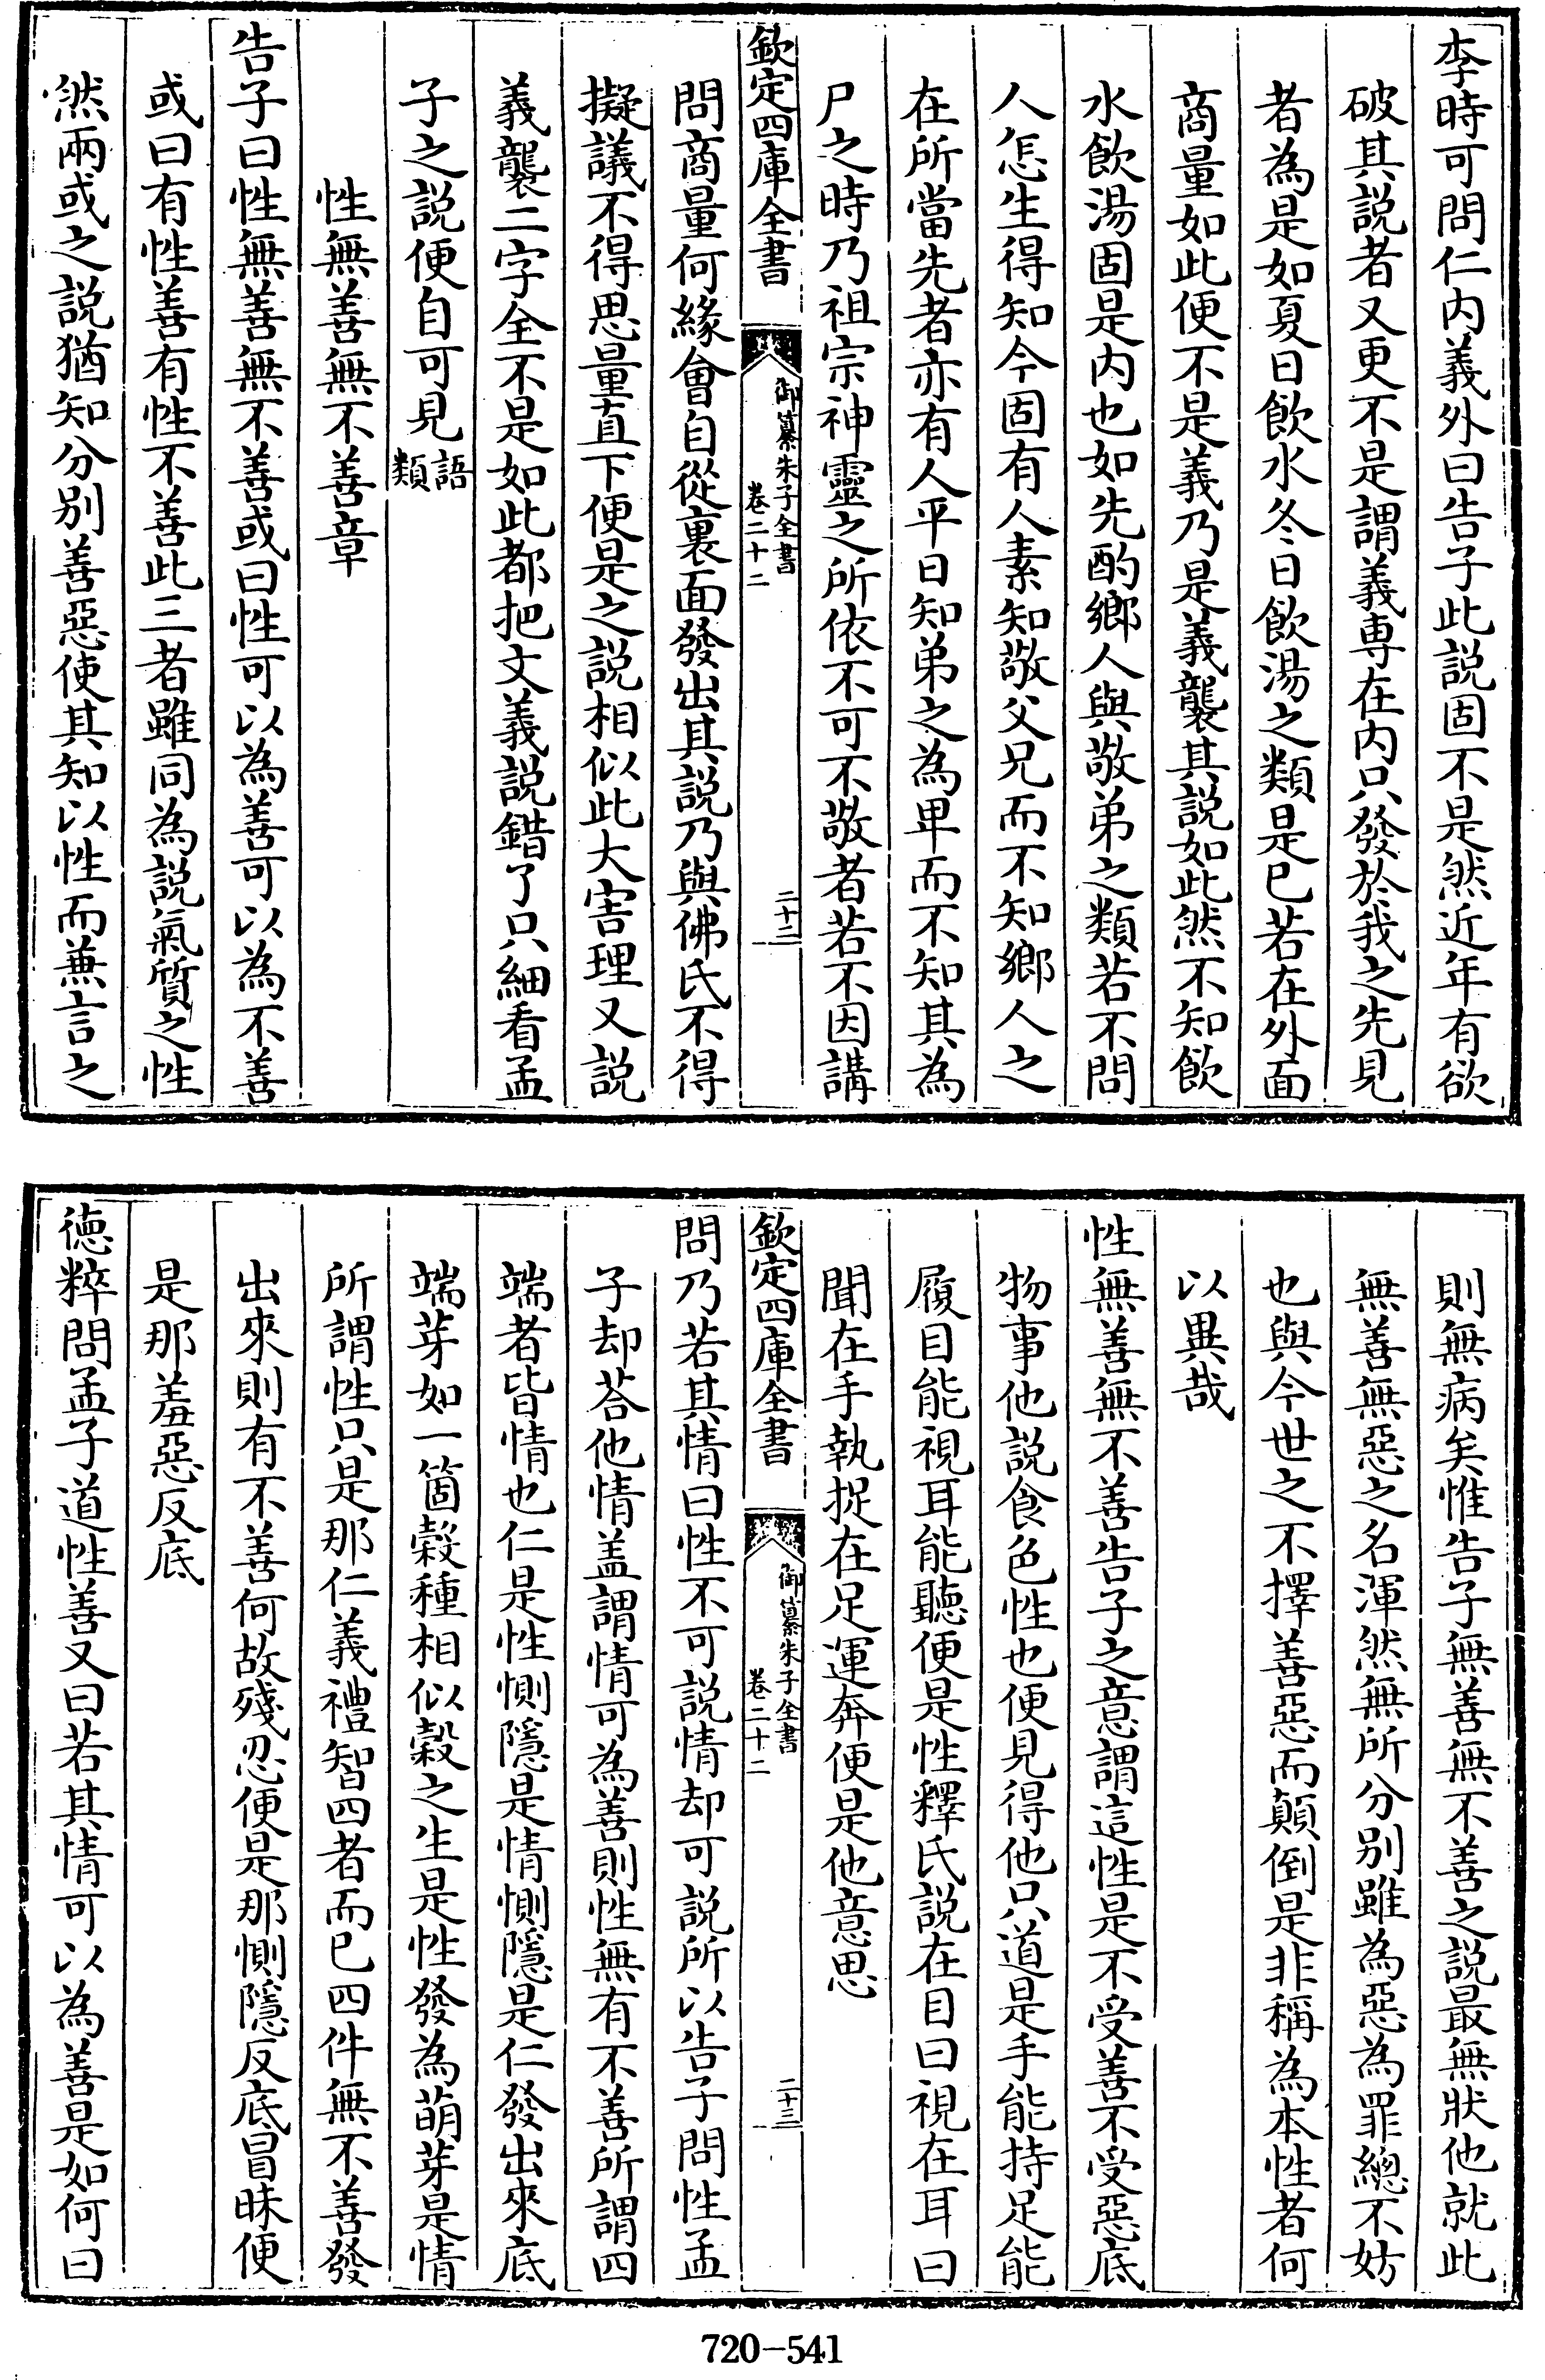 李時可問仁内義外曰告子此説固不是然近年有欲
破其説者又更不是謂義専在内只發於我之先見
者為是如夏日飲水冬日飲湯之類是已若在外面
商量如此便不是義乃是義襲其説如此然不知飲
水飲湯固是内也如先酌鄉人與敬弟之類若不問
人怎生得知今固有人素知敬父兄而不知鄉人之
在所當先者亦有人平日知弟之為卑而不知其為
尸之時乃祖宗神靈之所依不可不敬者若不因講
欽定四庫全書
御纂朱子全書
卷二十二
二十二
問商量何緣會自從裏面發出其説乃與佛氏不得
擬議不得思量直下便是之説相似此大害理又説
義襲二字全不是如此都把文義説錯了只細看孟
子之説便自可見語類
性無善無不善章
告子曰性無善無不善或曰性可以為善可以為不善
或曰有性善有性不善此三者雖同為説氣質之性
然兩或之説猶知分别善惡使其知以性而兼言之
則無病矣惟告子無善無不善之説最無狀他就此
無善無惡之名渾然無所分别雖為惡為罪總不妨
也與今世之不擇善惡而顛倒是非稱為本性者何
以異哉
性無善無不善告子之意謂這性是不受善不受惡底
物事他説食色性也便見得他只道是手能持足能
履目能視耳能聽便是性釋氏説在目曰視在耳曰
聞在手執捉在足運奔便是他意思
欽定四庫全書
御纂朱子全書
卷二十二
二十三
問乃若其情曰性不可説情却可説所以告子問性孟
子却荅他情盖謂情可為善則性無有不善所謂四
端者皆情也仁是性惻隱是情惻隱是仁發出來底
端芽如一箇榖種相似榖之生是性發為萌芽是情
所謂性只是那仁義禮智四者而已四件無不善發
出來則有不善何故殘忍便是那惻隱反底冒昧便
是那羞惡反底
德粹問孟子道性善又曰若其情可以為善是如何曰
720-541